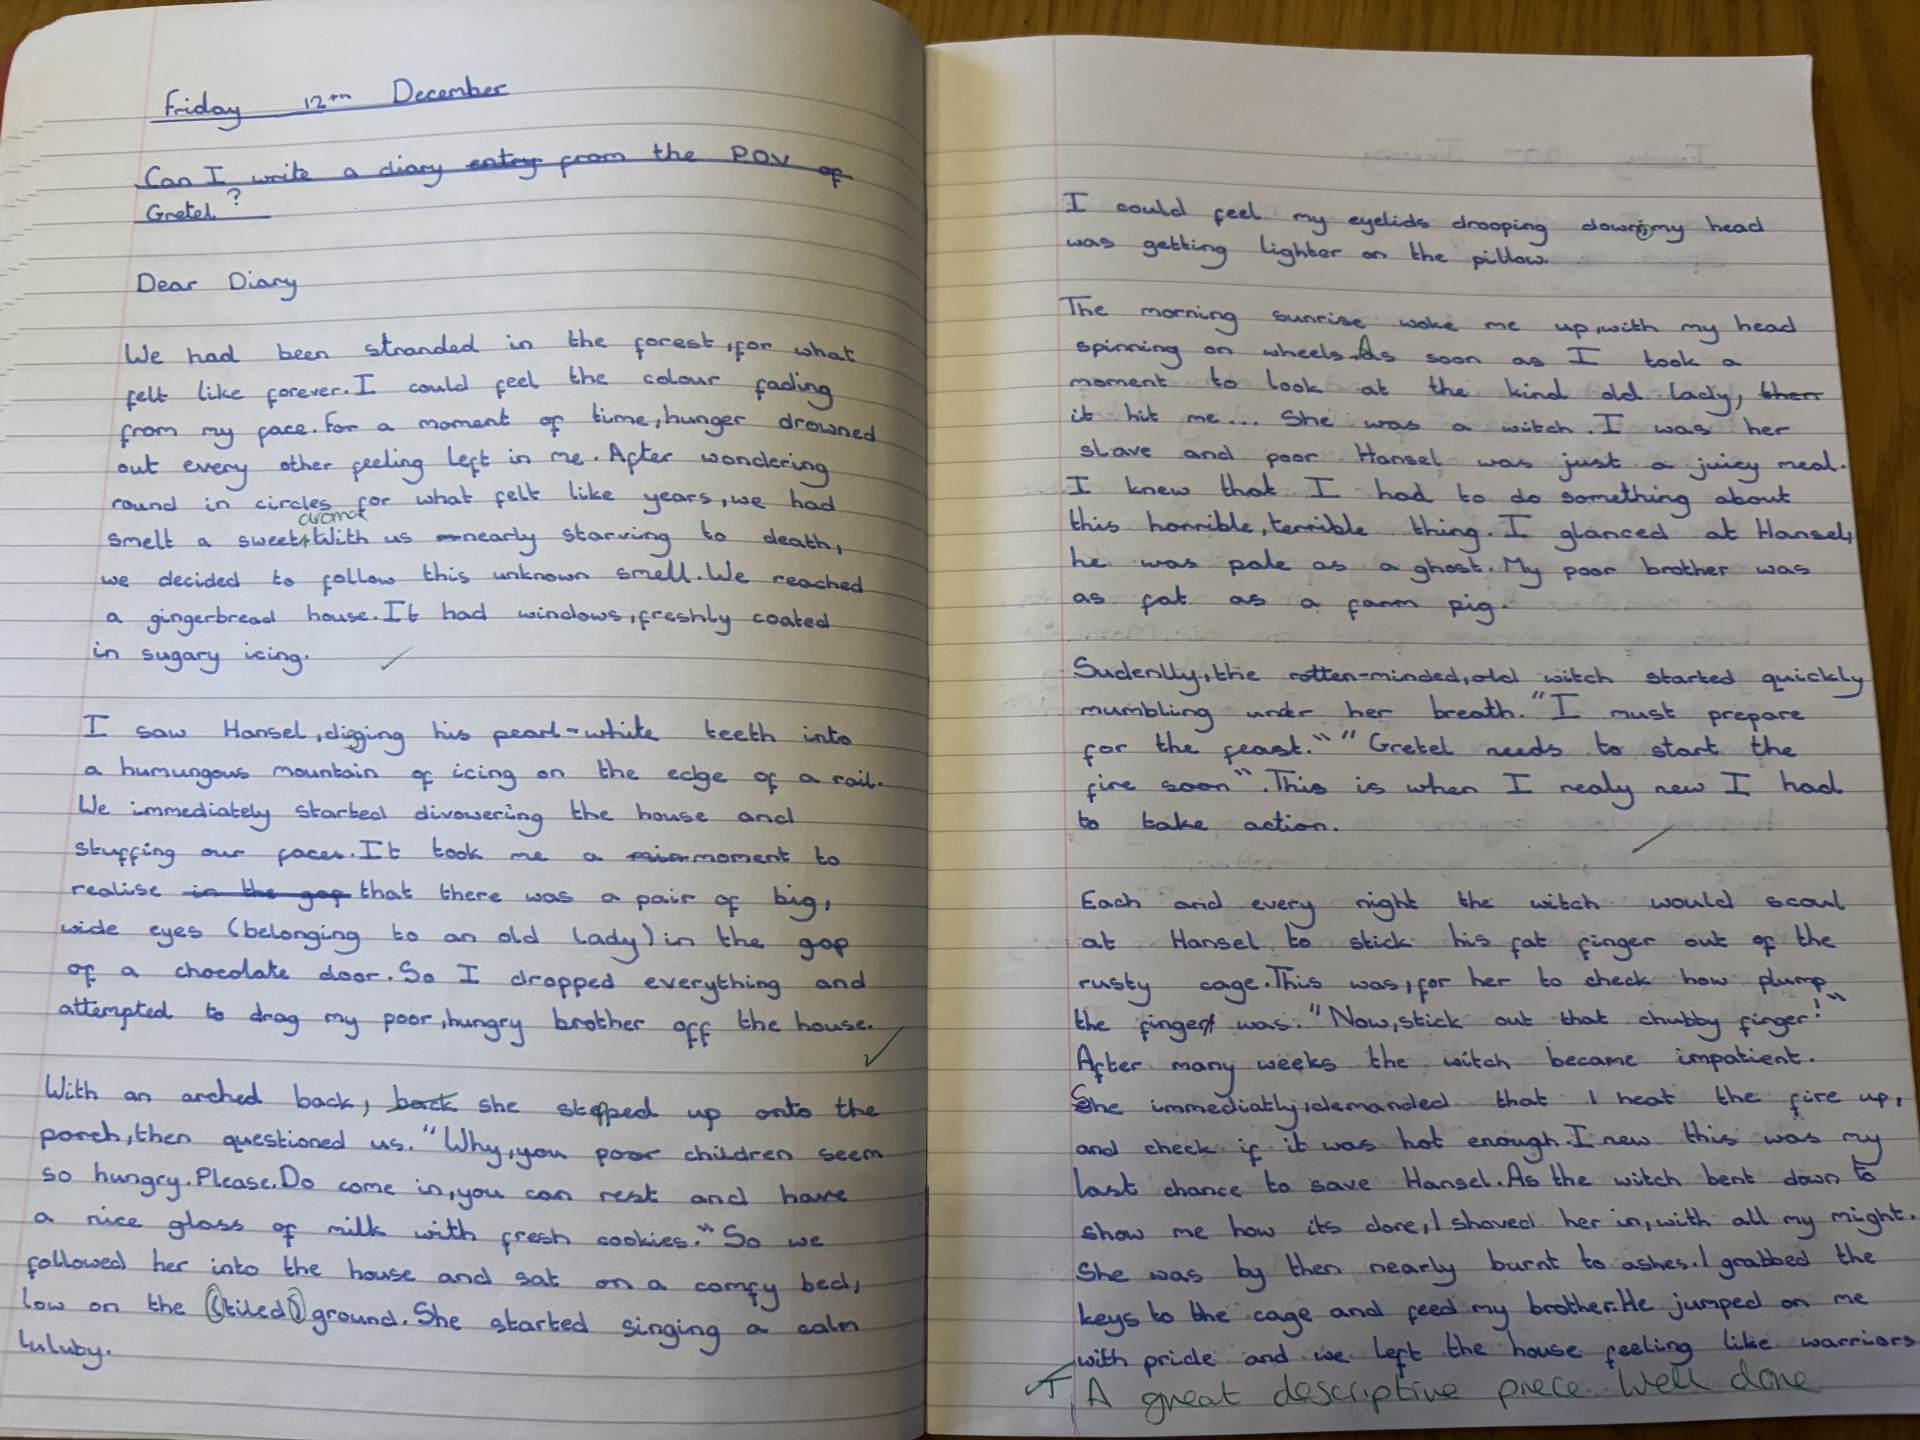 Friday 12th December
Can I write a diary entry from the POV of
Gretel?
Dear Diary
We had been stranded in the forest, for what
felt like forever. I could feel the colour fading
from my face. For a moment of time, hunger drowned
out every other feeling left in me. After wondering
round in circles for what felt like years, we had
aroma
smelt a sweet. With us nearly starving to death,
we decided to follow this unknown smell. We reached
a gingerbread house. It had windows, freshly coated
in sugary icing.
I saw Hansel, digging his pearl-white teeth into
a humungous mountain of icing on the edge of a rail.
We immediately started divowering the house and
stuffing our faces. It took me a moment to
realise in the gap that there was a pair of big,
wide eyes (belonging to an old lady) in the gap
of a chocolate door. So I dropped everything and
attempted to drag my poor, hungry brother off the house.
With an arched back, back she stepped up onto the
porch, then questioned us. "Why, you poor children seem
so hungry. Please. Do come in, you can rest and have
a nice glass of milk with fresh cookies." So we
followed her into the house and sat on a comfy bed,
low on the (tiled) ground. She started singing a calm
luluby.
I could feel my eyelids drooping down; my head
was getting lighter on the pillow.
The morning sunrise woke me up, with my head
spinning on wheels. As soon as I took a
moment to look at the kind old lady, then
it hit me... She was a witch. I was her
slave and poor Hansel was just a juicy meal.
I knew that I had to do something about
this horrible, terrible thing. I glanced at Hansel,
he was pale as a ghost. My poor brother was
as fat as a farm pig.
Sudenlly, the rotten-minded, old witch started quickly
mumbling under her breath. "I must prepare
for the feast." "Gretel needs to start the
fire soon". This is when I realy new I had
to take action.
Each and every night the witch would scoul
at Hansel to stick his fat finger out of the
rusty cage. This was, for her to check how plump
the finger was. "Now, stick out that chubby finger!"
After many weeks the witch became impatient.
She immediatly, demanded that I heat the fire up,
and check if it was hot enough. I new this was my
last chance to save Hansel. As the witch bent down to
show me how its done, I shoved her in, with all my might.
She was by then nearly burnt to ashes. I grabbed the
keys to the cage and feed my brother. He jumped on me
with pride and we left the house feeling like warriors
T A great descriptive piece. Well done